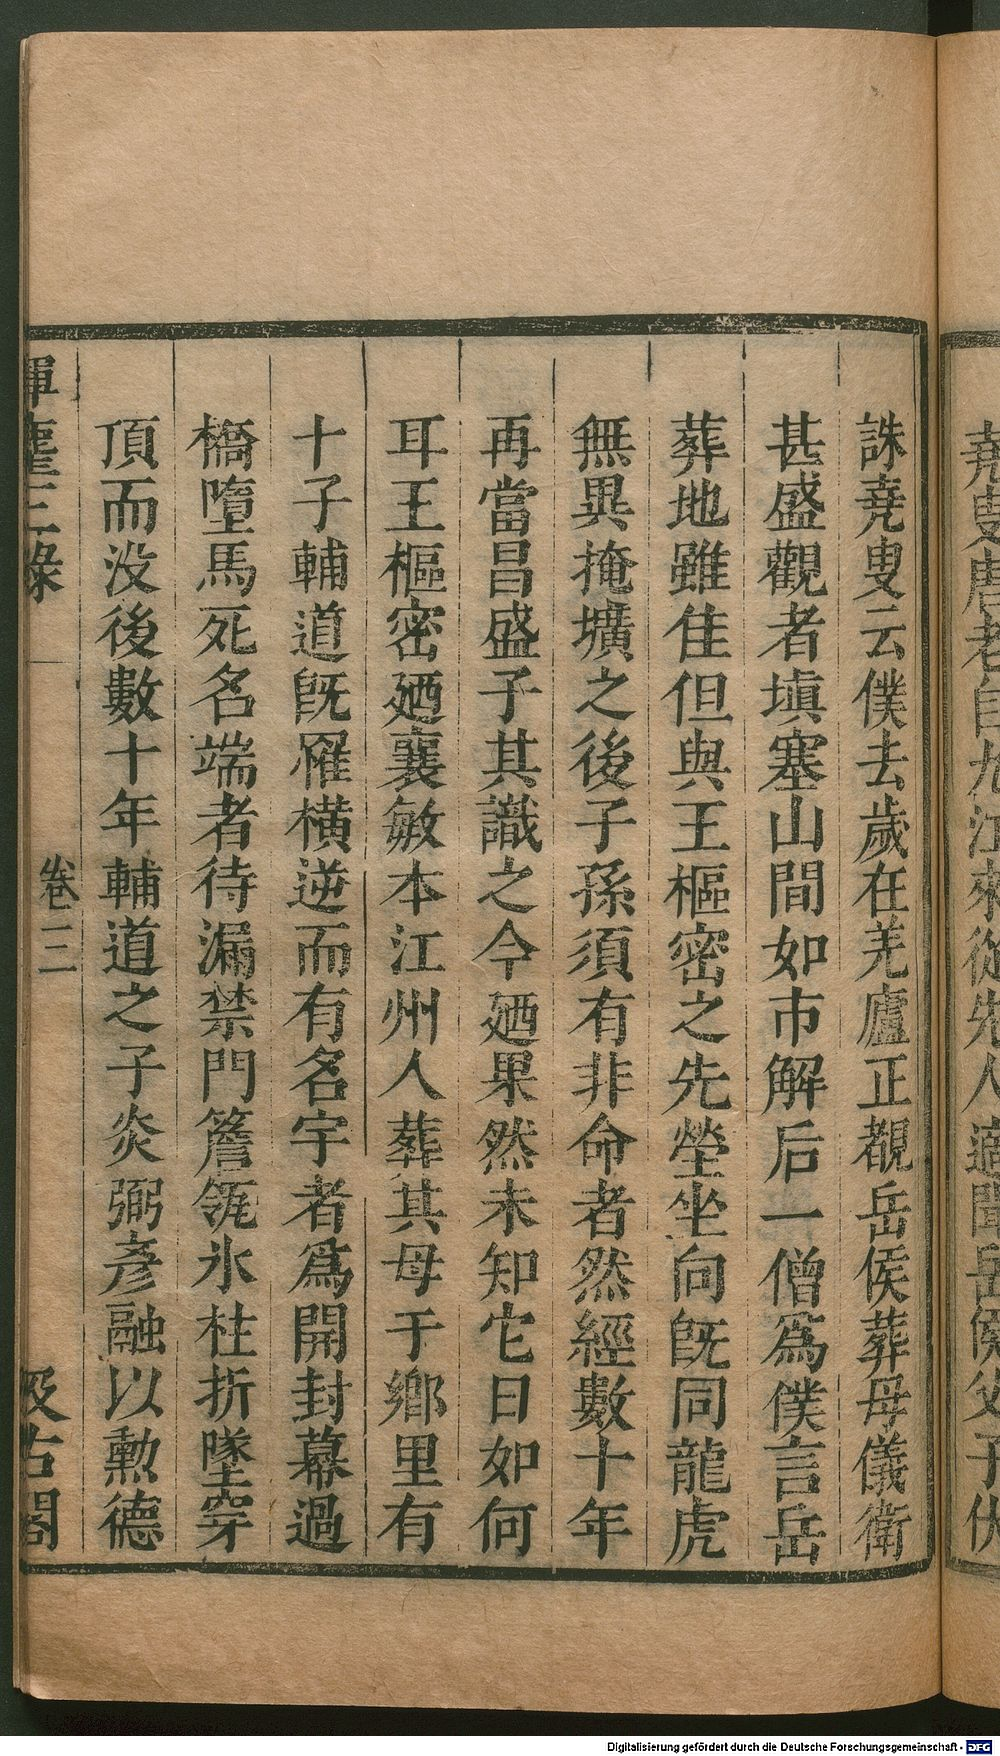 堯叟農者自九江來從先人適聞岳侯父子伏
誅堯叟云僕去歲在羌廬正覩岳侯葬母儀衛
甚盛觀者塡塞山間如市解后一僧爲僕言岳
葬地雖佳但與王樞密之先塋坐向旣同龍虎
無異掩壙之後子孫須有非命者然經數十年
再當昌盛子其識之今廼果然未知它日如何
耳王樞密廼襄敏本江州人葬其母于鄉里有
十子輔道旣罹橫逆而有名宇者爲開封幕過
橋墮馬死名端者待漏禁門簷瓴氷柱折墜穿
頂而没後數十年輔道之子炎弼彥融以勲德
揮麈三錄
卷三
汲古閣
Digitalisierung gefördert durch die Deutsche Forschungsgemeinschaft - DFG